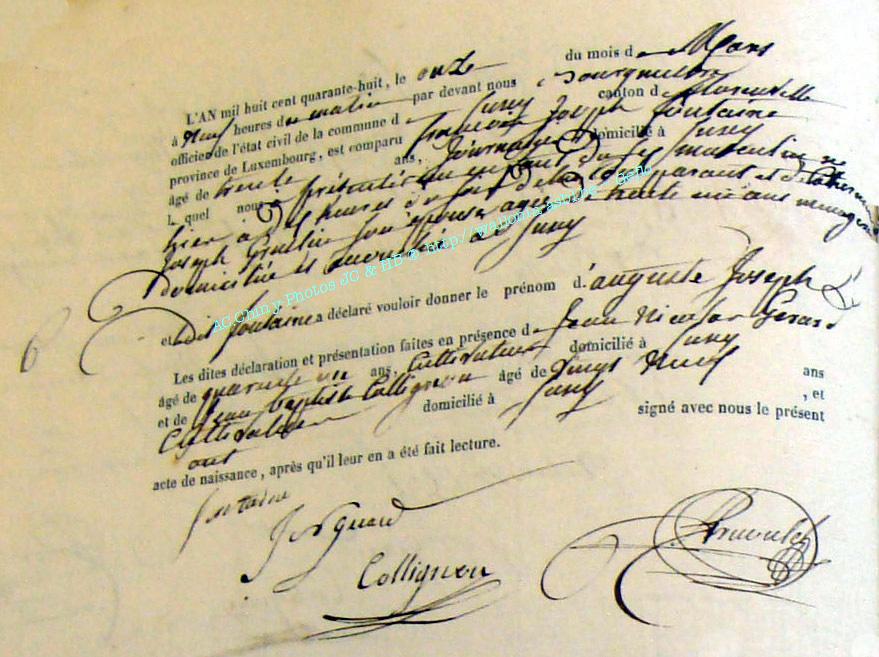 L'AN mil huit cent quarante-huit, le onze du mois de Mars
à neuf heures du matin par devant nous Bourgmestre
officier de l'état civil de la commune de Suxy canton de Florenville
province de Luxembourg, est comparu François Joseph fontaine
âgé de trente ans, Journalier domicilié à Suxy
L quel nous a présenté un enfant du sexe masculin né
hier à heures du soir de lui comparant et de Catherine
Joseph son épouse agée de trente un ans menagère
domiciliée à Suxy
et dit fontaine a déclaré vouloir donner le prénom d'auguste Joseph
Les dites déclaration et présentation faites en présence de Jean Nicolas Gerard
âgé de quarante un ans, Cultivateur domicilié à Suxy
et de Jean baptiste Collignon âgé de vingt neuf ans
Cultivateur domicilié à Suxy , et
ont signé avec nous le présent
acte de naissance, après qu'il leur en a été fait lecture.
fontaine
J N Gerard
Collignon
AC Chiny Photos JC & HB @ http//wallonia.asbl.be